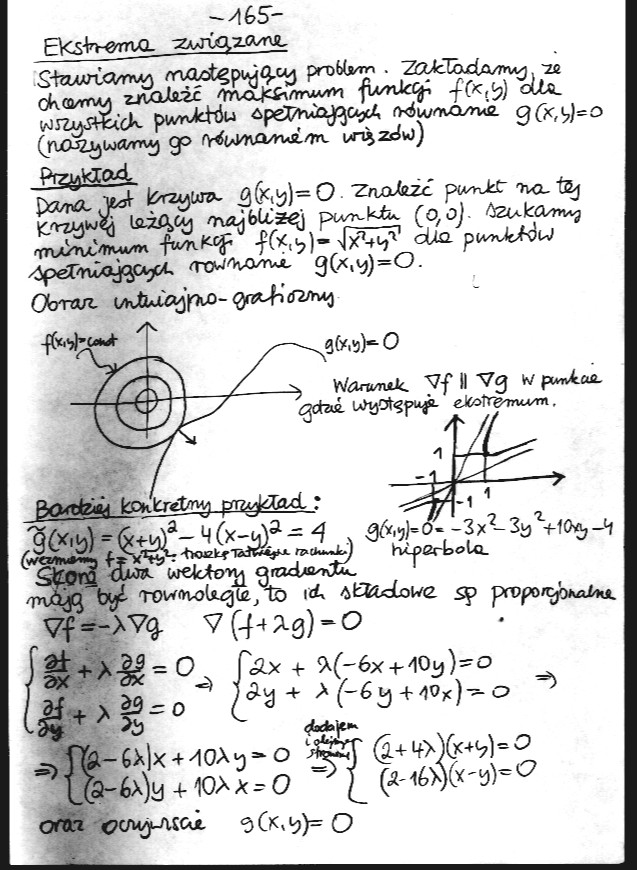 -165-
Ekstrema związane
Stawiamy następujący problem. Zakładamy, że
chcemy znaleźć maksimum funkcji f(x,y) dla
wszystkich punktów spełniających równanie g(x,y)=0
(nazywamy go równaniem więzów)
Przykład
Dana jest krzywa g(x,y)=0. Znaleźć punkt na tej
krzywej leżący najbliżej punktu (0,0). Szukamy
minimum funkcji f(x,y)=√(x²+y²) dla punktów
spełniających rownanie g(x,y)=0.
Obraz intuicyjno-graficzny
f(x,y)=const
g(x,y)=0
Warunek ∇f || ∇g w punkcie
gdzie występuje ekstremum.
1
-1
1
-1
Bardziej konkretny przykład:
g̃(x,y) = (x+y)² - 4(x-y)² = 4
g(x,y)=0= -3x²-3y²+10xy-4
hiperbola
(weźmiemy f=x²+y²: troszkę łatwiejsze rachunki)
Skoro dwa wektory gradientu
mają być rownoległe, to ich składowe są proporcjonalne
∇f=-λ∇g ∇(f+λg)=0
{ ∂f/∂x + λ ∂g/∂x = 0
∂f/∂y + λ ∂g/∂y = 0
⇒ { 2x + λ(-6x+10y)=0
2y + λ(-6y+10x)=0 ⇒
⇒ { (2-6λ)x+10λy=0
(2-6λ)y+10λx=0
dodajem
stronami
⇒ { (2+4λ)(x+y)=0
(2-16λ)(x-y)=0
oraz oczywiscie g(x,y)=0